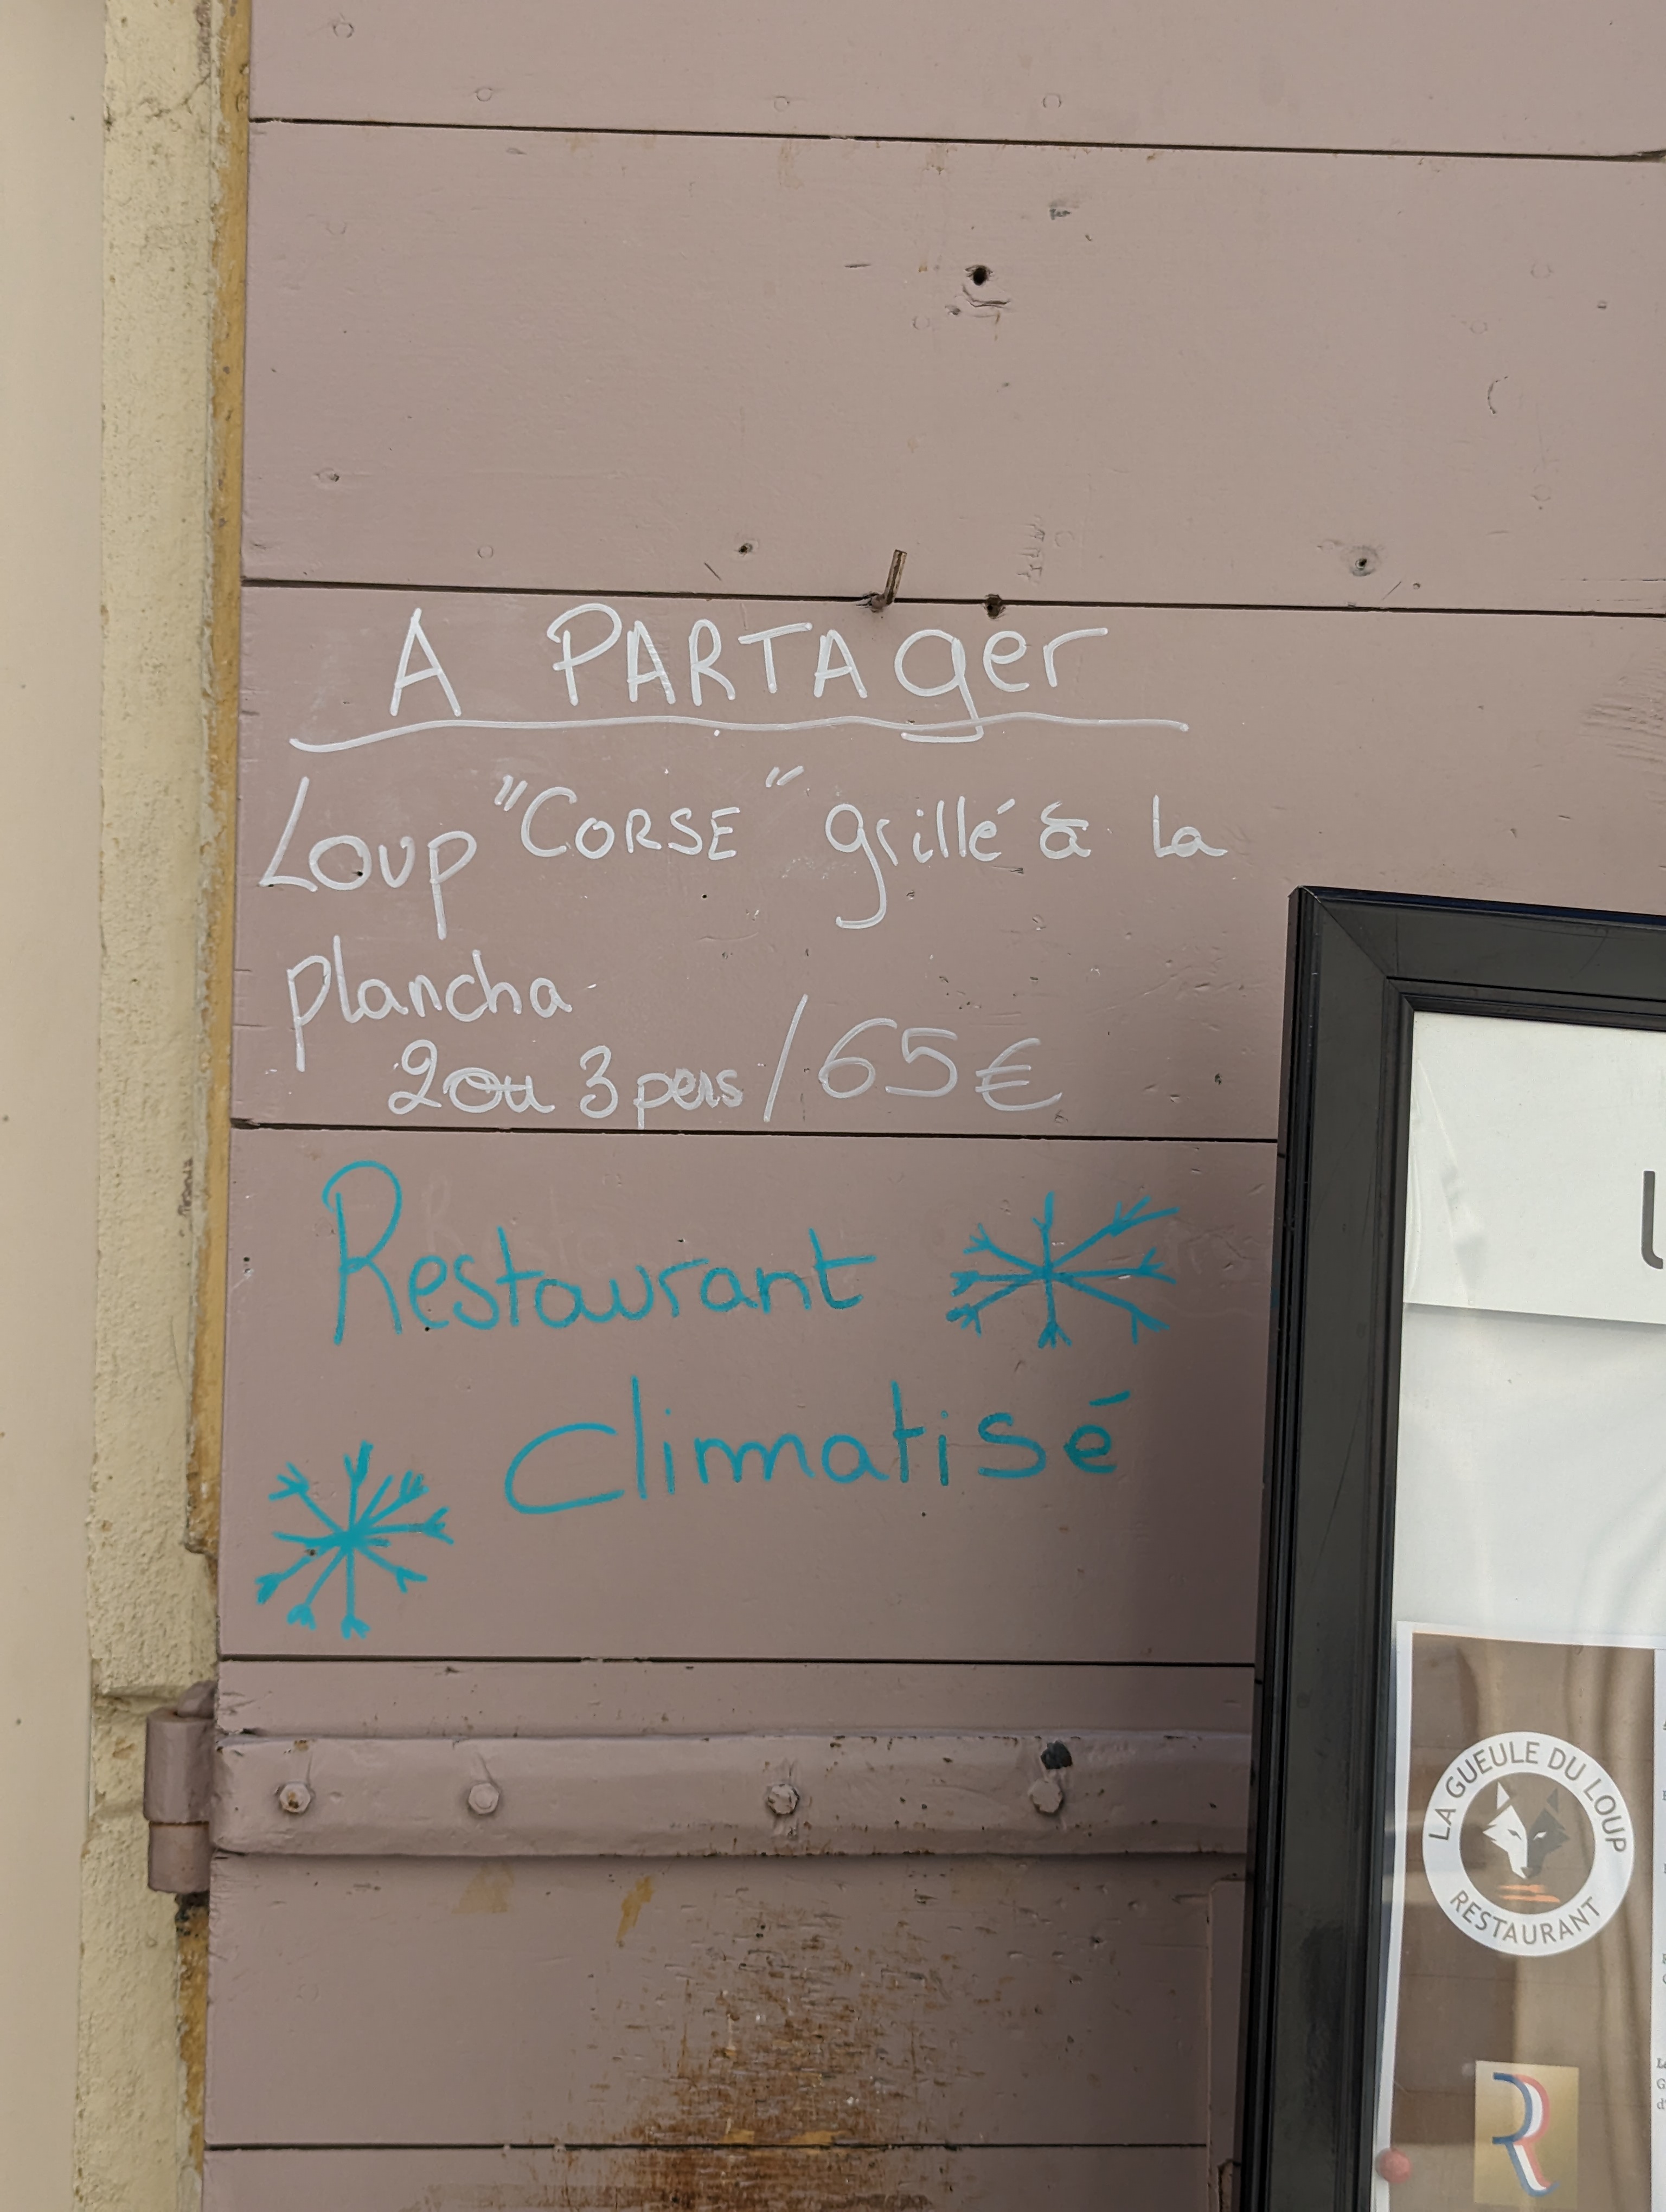 A PARTAger
Loup "CORSE" grillé à la
plancha
2 ou 3 pers / 65€
Restaurant
Climatisé
LA GUEULE DU LOUP
RESTAURANT